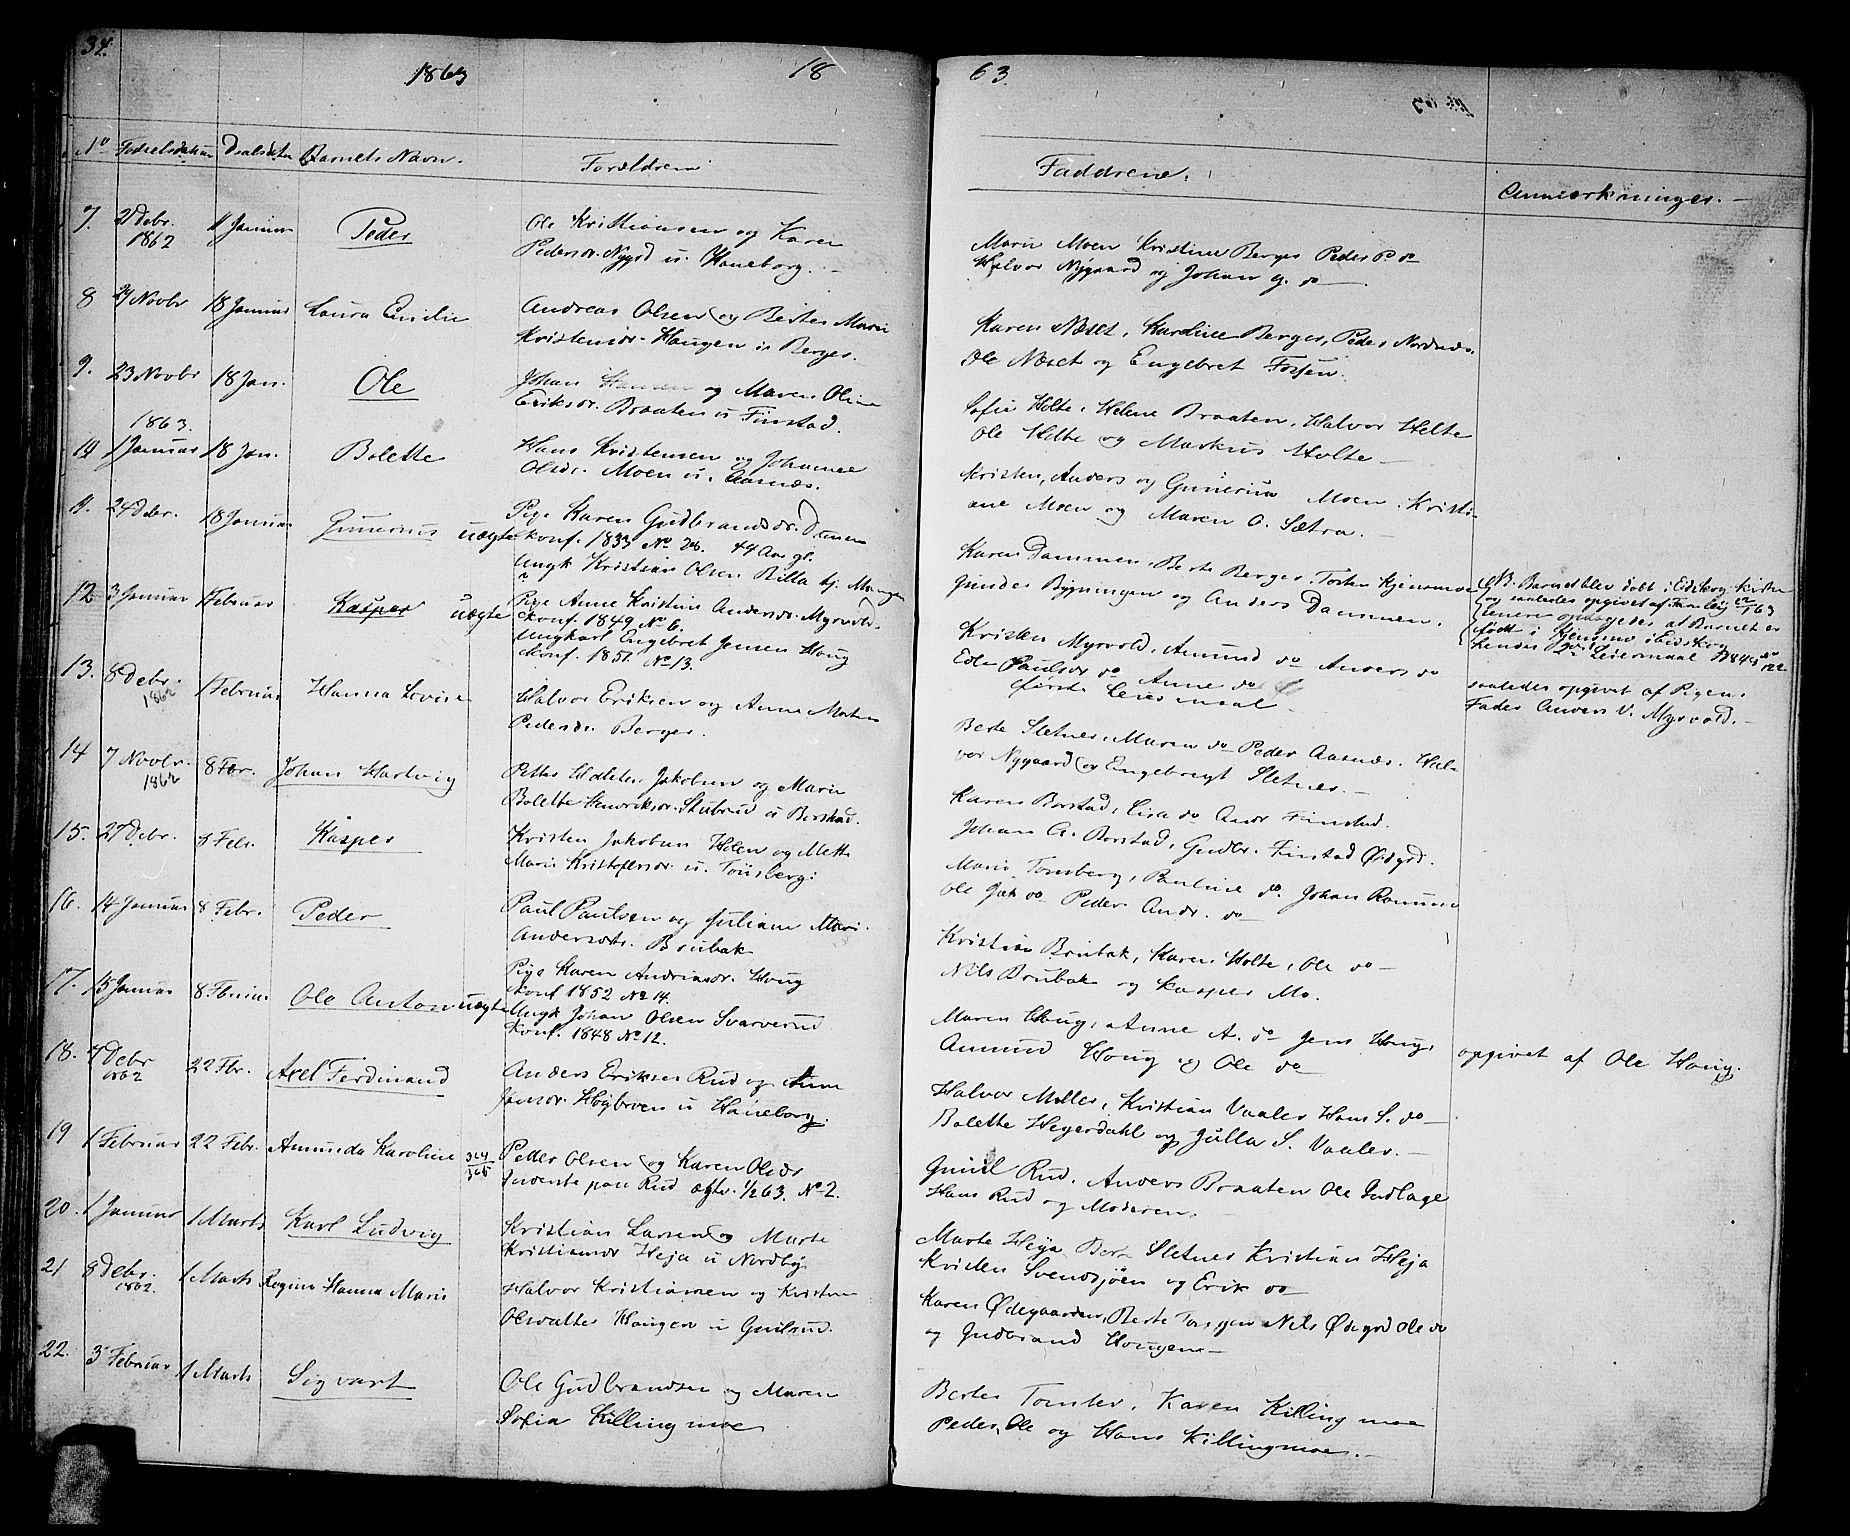 34.
1863
18
No Fødselsdatum Daabsdatum Barnets Navn. Forældrene
7. 21 Debr. 11 Januar Peder Ole Kristiansen og Karen
1862 Pedersdr. Nygrd u. Haneborg.
8 29 Novbr 18 Januar Laura Emilie Andreas Olsen og Berte Marie
Kristensdr. Haugen u Berger.
9. 23 Novbr 18 Jan. Ole Johan Hansen og Maren Oline
Eriksdr. Braaten u Finstad.
1863.
10 1 Januar 18 Jan. Bolette Hans Kristensen og Johanne
Olsdr. Moen u. Aasnæs.
11. 24 Debr. 18 Januar Gunerius uægte Pige Karen Gudbrandsdr. Damen
Konf. 1833 No 28. 44 Aar gl.
Ungk Kristian Olsen Billa
12 3 Januar 1 Februar Kasper uægte Pige Anne Kristine Andersdr. Myrvold.
Konf. 1849 No 6.
Ungkarl Engebret Jensen Houg
Konf. 1851. No 13.
13. 8 Debr. 1 Februar Hanna Lovise Halvor Eriksen og Anne Marten
1862 Pedersdr. Berger.
14 7 Novbr. 8 Febr. Johan Hartvig Petter Jakobsen og Marie
1862 Bolette Henriksdr. Stubrud u Borstad.
15. 27 Debr. 8 Febr. Kasper Kristen Jakobsen Holen og Mette
Marie Kristofersdr. u. Tønsberg.
16. 14 Januar 8 Febr. Peder Paul Paulsen og Juliane Marie
Andersdtr. Brubak
17. 15 Januar 8 Februar Ole Anton uægte Pige Karen Andreasdr. Houg
Konf 1852 No 14.
Ungk Johan Olsen Svarverud
Konf. 1848 No 12.
18. 4 Debr 22 Fbr. Axel Ferdinand Anders Eriksen Rud og Anne
1862 Jansdr. Høybroen u Haneborg.
19 1 Februar 22 Febr. Amunda Karoline Peder Olsen og Karen Olsdr
Inderste paa Rud ægtv. 1/2 63. No 2.
20. 1 Januar 1 Marts Karl Ludvig Kristian Larsen og Marte
Kristiansdr Heja u Nordby
21 8 Debr. 1 Marts Regine Hanna Marie Halvor Kristiansen og Kristine
1862. Olsdatter Haugen u Gulsrud.
22. 3 Februar 1 Marts Sigvart Ole Gudbrandsen og Maren
Sofia Killingmoe
63.
Faddrene. Anmærkninger.
Marie Moen Kristine Berger Peder P do
Halvor Nygaard og Johan G. do
Karen Næset, Karoline Berger, Peder Nordnæs.
Ole Næset og Engebret Fossen.
Sofie Holte, Helene Braaten, Halvor Holte
Ole Holte og Markus Holte
Kristen, Anders og Gunerius Moen. Kristi-
ane Moen og Maren O. Sætra.
Karen Dammen, Berte Berger, Torsten Kjensmoe
Gunder Bygningen og Anders Dammen.
NB. Barnet blev døbt i Eidskog Kirke
og saaledes opgivet af
senere opdagedes at Barnet er
født i Kjensmo i Eidskog
hendes 2det Leiermaal
Kristen Myrvold, Amund do Anders do
Edle Paulsdr do Anne do
første Leiermaal
saaledes opgivet af Pigens
Fader Anders V. Myrvold.
Berte Sletnes, Maren do Peder Aasnæs. Hal-
vor Nygaard og Engebregt Sletnes.
Karen Borstad, Lisa do Andr Finstad.
Johan A. Borstad, Gudbr. Finstad Ødegrd.
Marie Tonsberg, Pauline do. Johan Ramund
Ole Jak do Peder Andr. do
Kristian Brubak, Karen Holte, Ole do
Nils Brubak og Kasper Mo.
Maren Houg, Anne A. do Jens Houg,
Amund Houg og Ole do
opgivet af Ole Houg.
Halvor Møller, Kristian Vaaler Hans S. do
Bolette Heyerdahl og Julla S. Vaaler.
Gunil Rud, Anders Braaten Ole Indlage
Hans Rud og Moderen.
Marte Heja Berte Sletnes Kristian Heja
Kristen Svensjøen og Erik do
Karen Ødegaarden, Berte Nils Ødegrd Ole do
og Gudbrand Hougen
Berte Tomter, Karen Killingmoe
Peder, Ole og Hans Killingmoe.